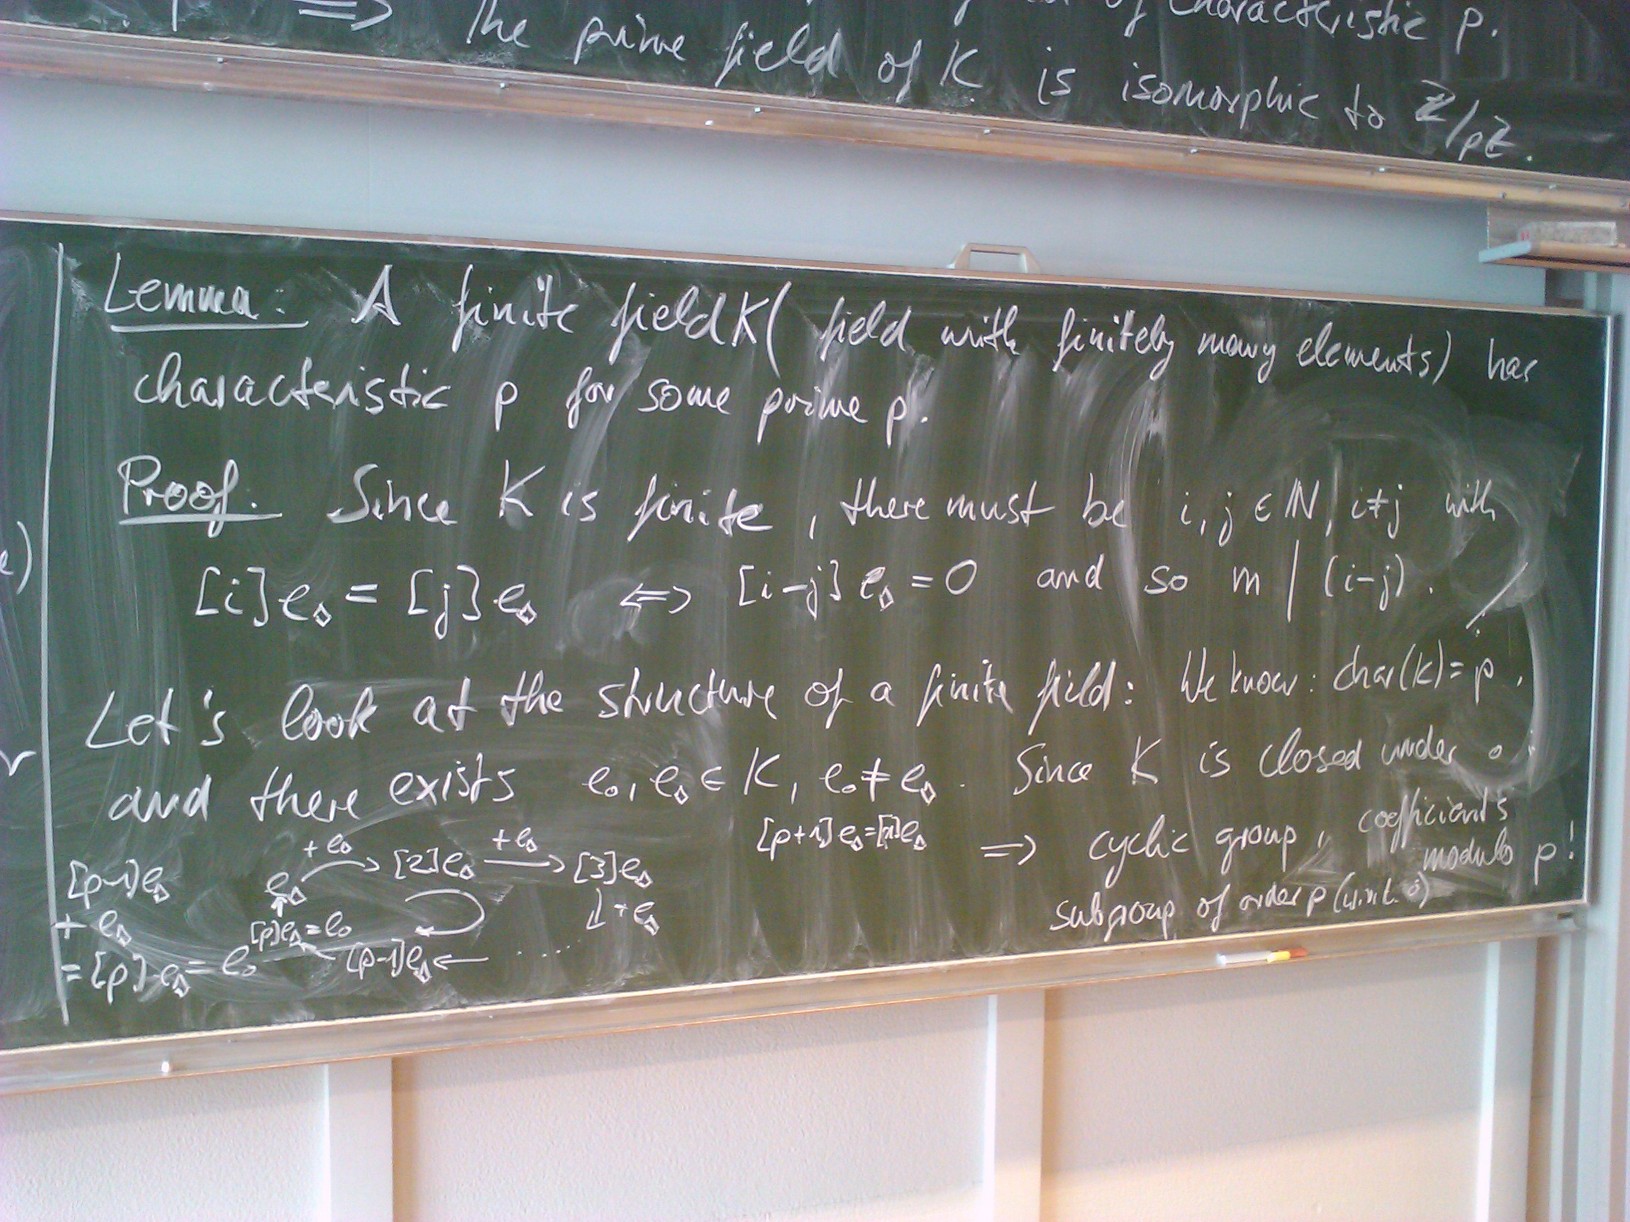 => the prime field of K is isomorphic to ℤ/pℤ.
of characteristic p.
Lemma: A finite field K ( field with finitely many elements) has
characteristic p for some prime p.
Proof. Since K is finite, there must be i, j ∈ ℕ, i≠j with
[i]e◇ = [j]e◇ <=> [i-j] e◇ = 0 and so m | (i-j).
Let's look at the structure of a finite field: We know: char(K) = p,
and there exists e∘, e◇ ∈ K, e∘ ≠ e◇. Since K is closed under ∘:
[p+1]e◇=[1]e◇ => cyclic group, coefficients modulo p!
subgroup of order p (w.r.t. ∘)
e◇ +e◇ → [2]e◇ +e◇ → [3]e◇
↓ +e◇
[p]e◇=e∘ ← [p-1]e◇ ← ....
[p-1]e◇
+ e◇
= [p]·e◇ = e∘